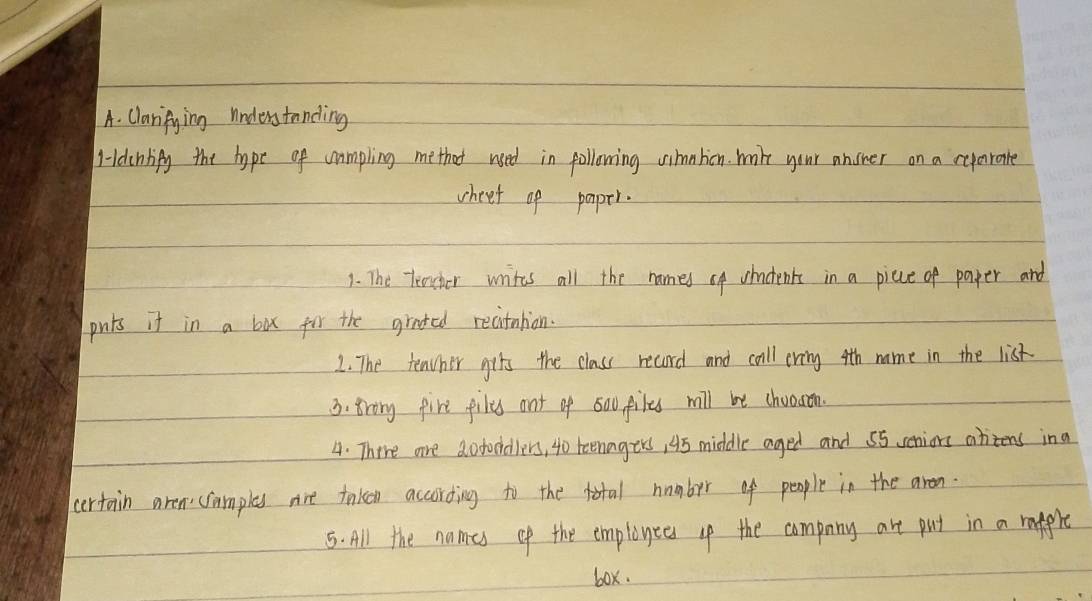 A. Clarifying Understanding
1-Identify the type of sampling method used in following situation. Write your answer on a separate
sheet of paper.
1. The teacher writes all the names of students in a piece of paper and
puts it in a box for the graded recitation.
2. The teacher gets the class record and call every 4th name in the list
3. Every five files out of 500 files will be choosen.
4. There are 20 toddlers, 40 teenagers, 45 middle aged and 55 seniors citizens in a
certain area. Samples are taken according to the total number of people in the area.
5. All the names of the employees of the company are put in a raffle
box.